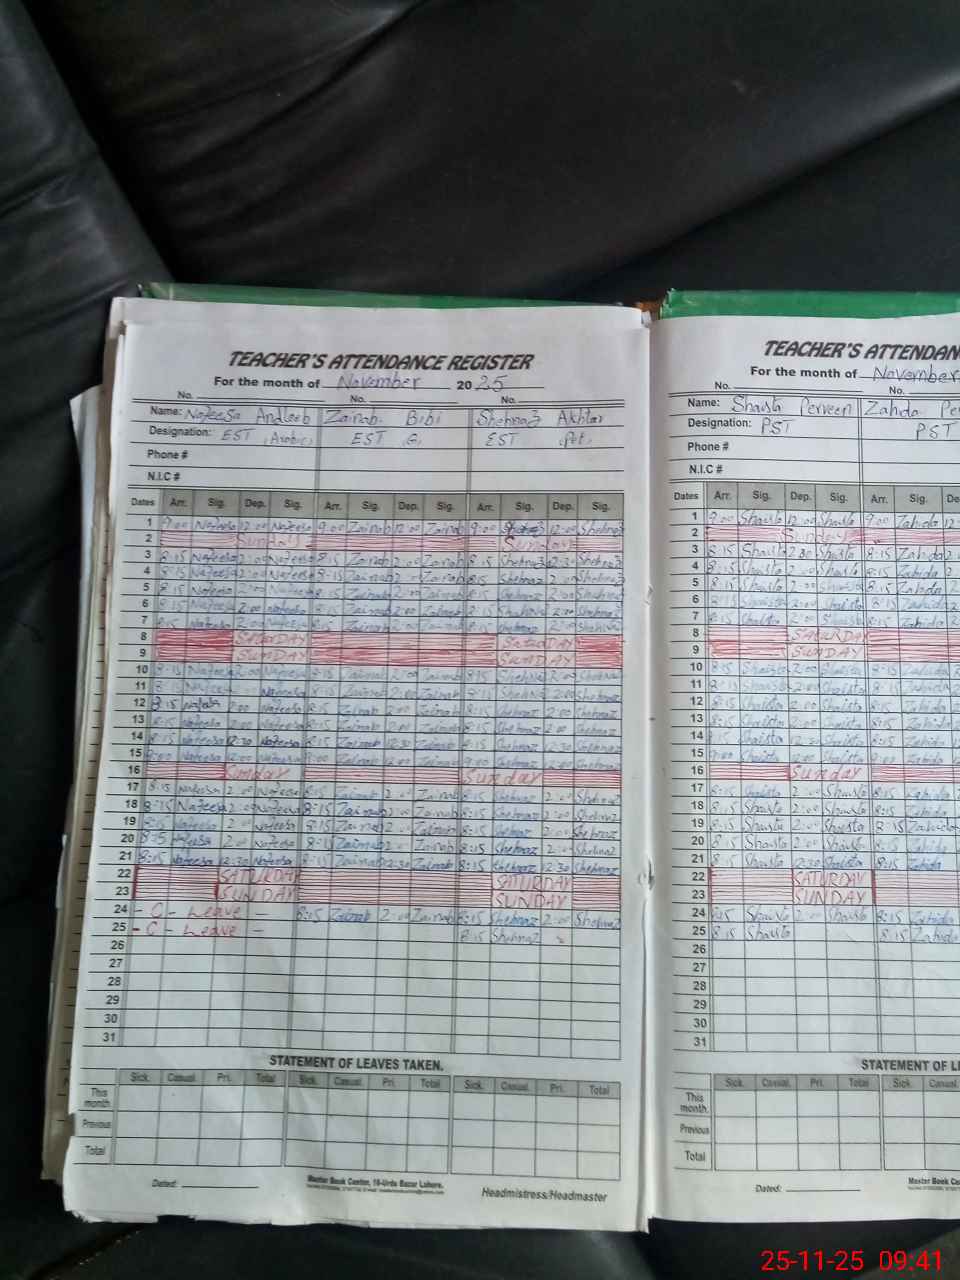 TEACHER'S ATTENDANCE REGISTER
For the month of November 2025
No. No. No.
Name: Nafeesa Andleeb Zainab Bibi Shehnaz Akhtar
Designation: EST (Arabic) EST (G) EST (Pet)
Phone #
N.I.C #
Dates Arr. Sig. Dep. Sig. Arr. Sig. Dep. Sig. Arr. Sig. Dep. Sig.
1 9:00 Nafeesa 12:00 Nafeesa 9:00 Zainab 12:00 Zainab 9:00 Shehnaz 12:00 Shehnaz
2 Sunday Sunday
3 8:15 Nafeesa 2:00 Nafeesa 8:15 Zainab 2:00 Zainab 8:15 Shehnaz 2:30 Shehnaz
4 8:15 Nafeesa 2:00 Nafeesa 8:15 Zainab 2:00 Zainab 8:15 Shehnaz 2:00 Shehnaz
5 8:15 Nafeesa 2:00 Nafeesa 8:15 Zainab 2:00 Zainab 8:15 Shehnaz 2:00 Shehnaz
6 8:15 Nafeesa 2:00 Nafeesa 8:15 Zainab 2:00 Zainab 8:15 Shehnaz 2:00 Shehnaz
7 8:15 Nafeesa 2:00 Nafeesa 8:15 Zainab 2:00 Zainab 8:15 Shehnaz 2:00 Shehnaz
8 SATURDAY SATURDAY
9 SUNDAY SUNDAY
10 8:15 Nafeesa 2:00 Nafeesa 8:15 Zainab 2:00 Zainab 8:15 Shehnaz 2:00 Shehnaz
11 8:15 Nafeesa Nafeesa 8:15 Zainab 2:00 Zainab 8:15 Shehnaz 2:00 Shehnaz
12 8:15 Nafeesa 2:00 Nafeesa 8:15 Zainab 2:00 Zainab 8:15 Shehnaz 2:00 Shehnaz
13 8:15 Nafeesa 2:00 Nafeesa 8:15 Zainab 2:00 Zainab 8:15 Shehnaz 2:00 Shehnaz
14 8:15 Nafeesa 12:30 Nafeesa 8:15 Zainab 12:30 Zainab 8:15 Shehnaz 12:30 Shehnaz
15 9:00 Nafeesa 12:00 Nafeesa 9:00 Zainab 12:00 Zainab 9:00 Shehnaz 12:00 Shehnaz
16 Sunday Sunday
17 8:15 Nafeesa 2:00 Nafeesa 8:15 Zainab 2:00 Zainab 8:15 Shehnaz 2:00 Shehnaz
18 8:15 Nafeesa 2:00 Nafeesa 8:15 Zainab 2:00 Zainab 8:15 Shehnaz 2:00 Shehnaz
19 8:15 Nafeesa 2:00 Nafeesa 8:15 Zainab 2:00 Zainab 8:15 Shehnaz 2:00 Shehnaz
20 8:15 Nafeesa 2:00 Nafeesa 8:15 Zainab 2:00 Zainab 8:15 Shehnaz 2:00 Shehnaz
21 8:15 Nafeesa 12:30 Nafeesa 8:15 Zainab 12:30 Zainab 8:15 Shehnaz 12:30 Shehnaz
22 SATURDAY SATURDAY
23 SUNDAY SUNDAY
24 - C - Leave - 8:15 Zainab 2:00 Zainab 8:15 Shehnaz 2:00 Shehnaz
25 - C - Leave - 8:15 Shehnaz
26
27
28
29
30
31
STATEMENT OF LEAVES TAKEN.
Sick. Casual. Pri. Total Sick. Casual. Pri. Total Sick. Casual. Pri. Total
This month.
Previous
Total
Dated: Master Book Center, 16-Urdu Bazar Lahore. Headmistress/Headmaster
TEACHER'S ATTENDAN
For the month of November
No. No.
Name: Shaista Perveen Zahida Pe
Designation: PST PST
Phone #
N.I.C #
Dates Arr. Sig. Dep. Sig. Arr. Sig. De
1 9:00 Shaista 12:00 Shaista 9:00 Zahida 12:
2 Sunday
3 8:15 Shaista 2:30 Shaista 8:15 Zahida 2
4 8:15 Shaista 2:00 Shaista 8:15 Zahida 2
5 8:15 Shaista 2:00 Shaista 8:15 Zahida 2
6 8:15 Shaista 2:00 Shaista 8:15 Zahida 2
7 8:15 Shaista 2:00 Shaista 8:15 Zahida 2
8 SATURDAY
9 SUNDAY
10 8:15 Shaista 2:00 Shaista 8:15 Zahida
11 8:15 Shaista 2:00 Shaista 8:15 Zahida
12 8:15 Shaista 2:00 Shaista 8:15 Zahida
13 8:15 Shaista 2:00 Shaista 8:15 Zahida
14 8:15 Shaista 12:30 Shaista 8:15 Zahida
15 9:00 Shaista 12:00 Shaista 9:00 Zahida
16 Sunday
17 8:15 Shaista 2:00 Shaista 8:15 Zahida
18 8:15 Shaista 2:00 Shaista 8:15 Zahida
19 8:15 Shaista 2:00 Shaista 8:15 Zahida
20 8:15 Shaista 2:00 Shaista 8:15 Zahida
21 8:15 Shaista 12:30 Shaista 8:15 Zahida
22 SATURDAY
23 SUNDAY
24 8:15 Shaista 2:00 Shaista 8:15 Zahida
25 8:15 Shaista 8:15 Zahida
26
27
28
29
30
31
STATEMENT OF LE
Sick. Casual. Pri. Total Sick. Casual
This month.
Previous
Total
Dated: Master Book Ce
25-11-25 09:41